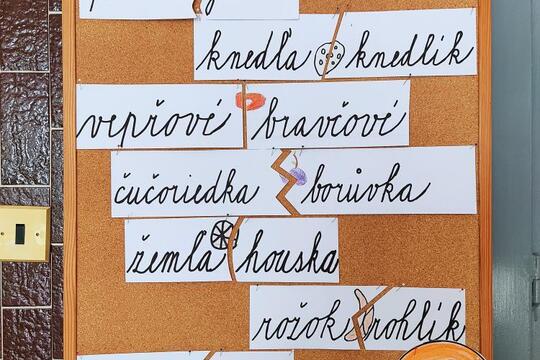 knedľa knedlík
vepřové bravčové
čučoriedka borůvka
žemľa houska
rožok rohlík